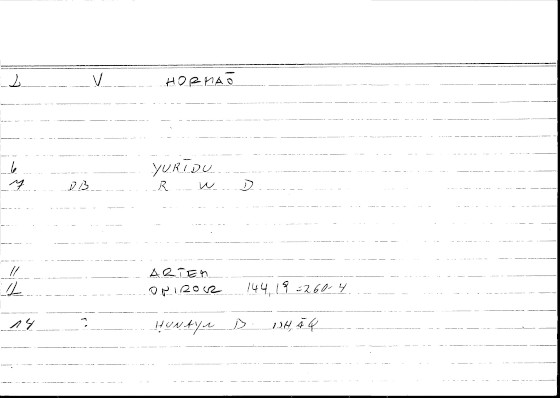 2 V HORMAŌ
6 YURĪDU
7 DB R W D
11 ARTEM
12 ONIROCR 144,19 = 260-4
14 ? HUNAYN B ISHĀQ